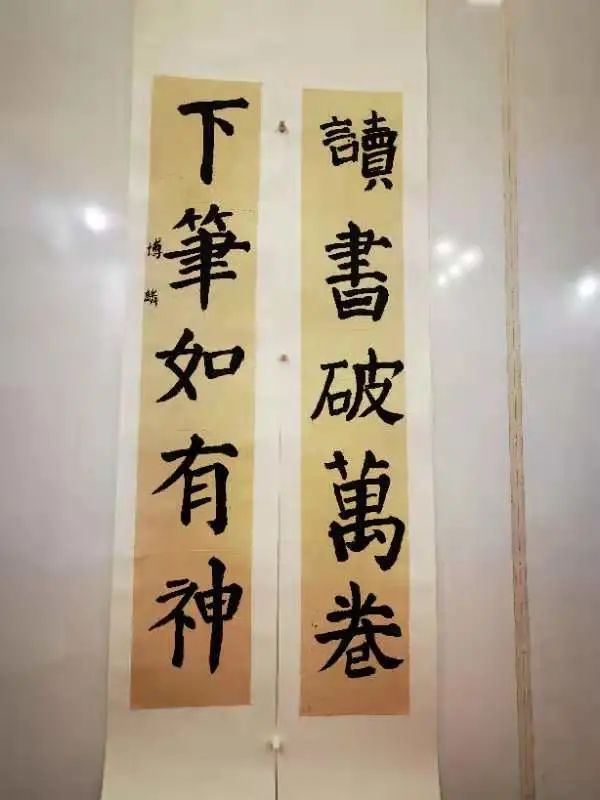 讀書破萬卷
下筆如有神
博麟